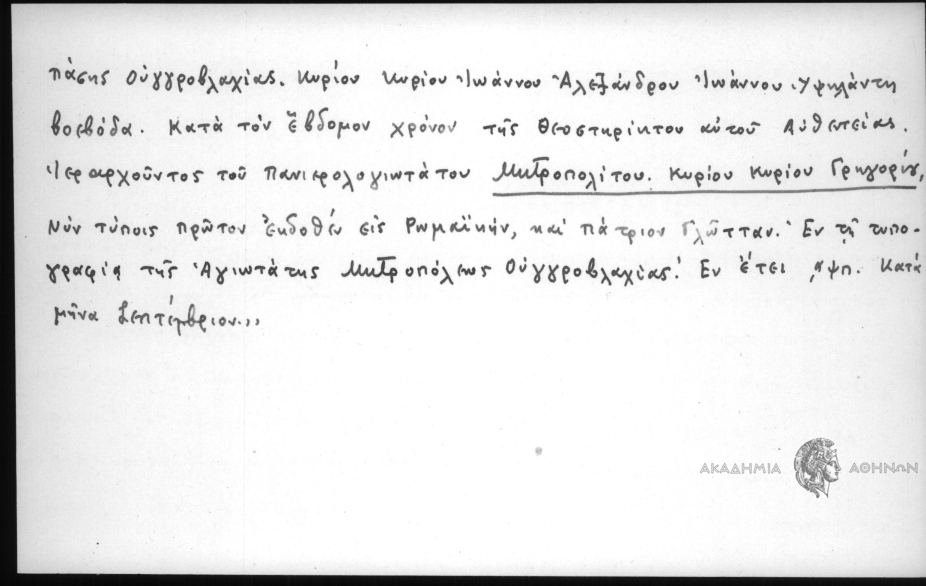 πάσης Οὐγγροβλαχίας. Κυρίου Κυρίου Ἰωάννου Ἀλεξάνδρου Ἰωάννου Ὑψηλάντη
βοεβόδα. Κατὰ τὸν ἕβδομον χρόνον τῆς θεοστηρίκτου αὐτοῦ Αὐθεντείας.
Ἱεραρχοῦντος τοῦ Πανιερολογιωτάτου Μητροπολίτου. Κυρίου Κυρίου Γρηγορίου,
Νῦν τύποις πρῶτον ἐκδοθὲν εἰς Ρωμαϊκήν, καὶ πάτριον Γλῶτταν. Ἐν τῇ τυπο-
γραφίᾳ τῆς Ἁγιωτάτης Μητροπόλεως Οὐγγροβλαχίας. Ἐν ἔτει ͵αψπ. Κατὰ
μῆνα Σεπτέμβριον.,,
ΑΚΑΔΗΜΙΑ ΑΘΗΝΩΝ